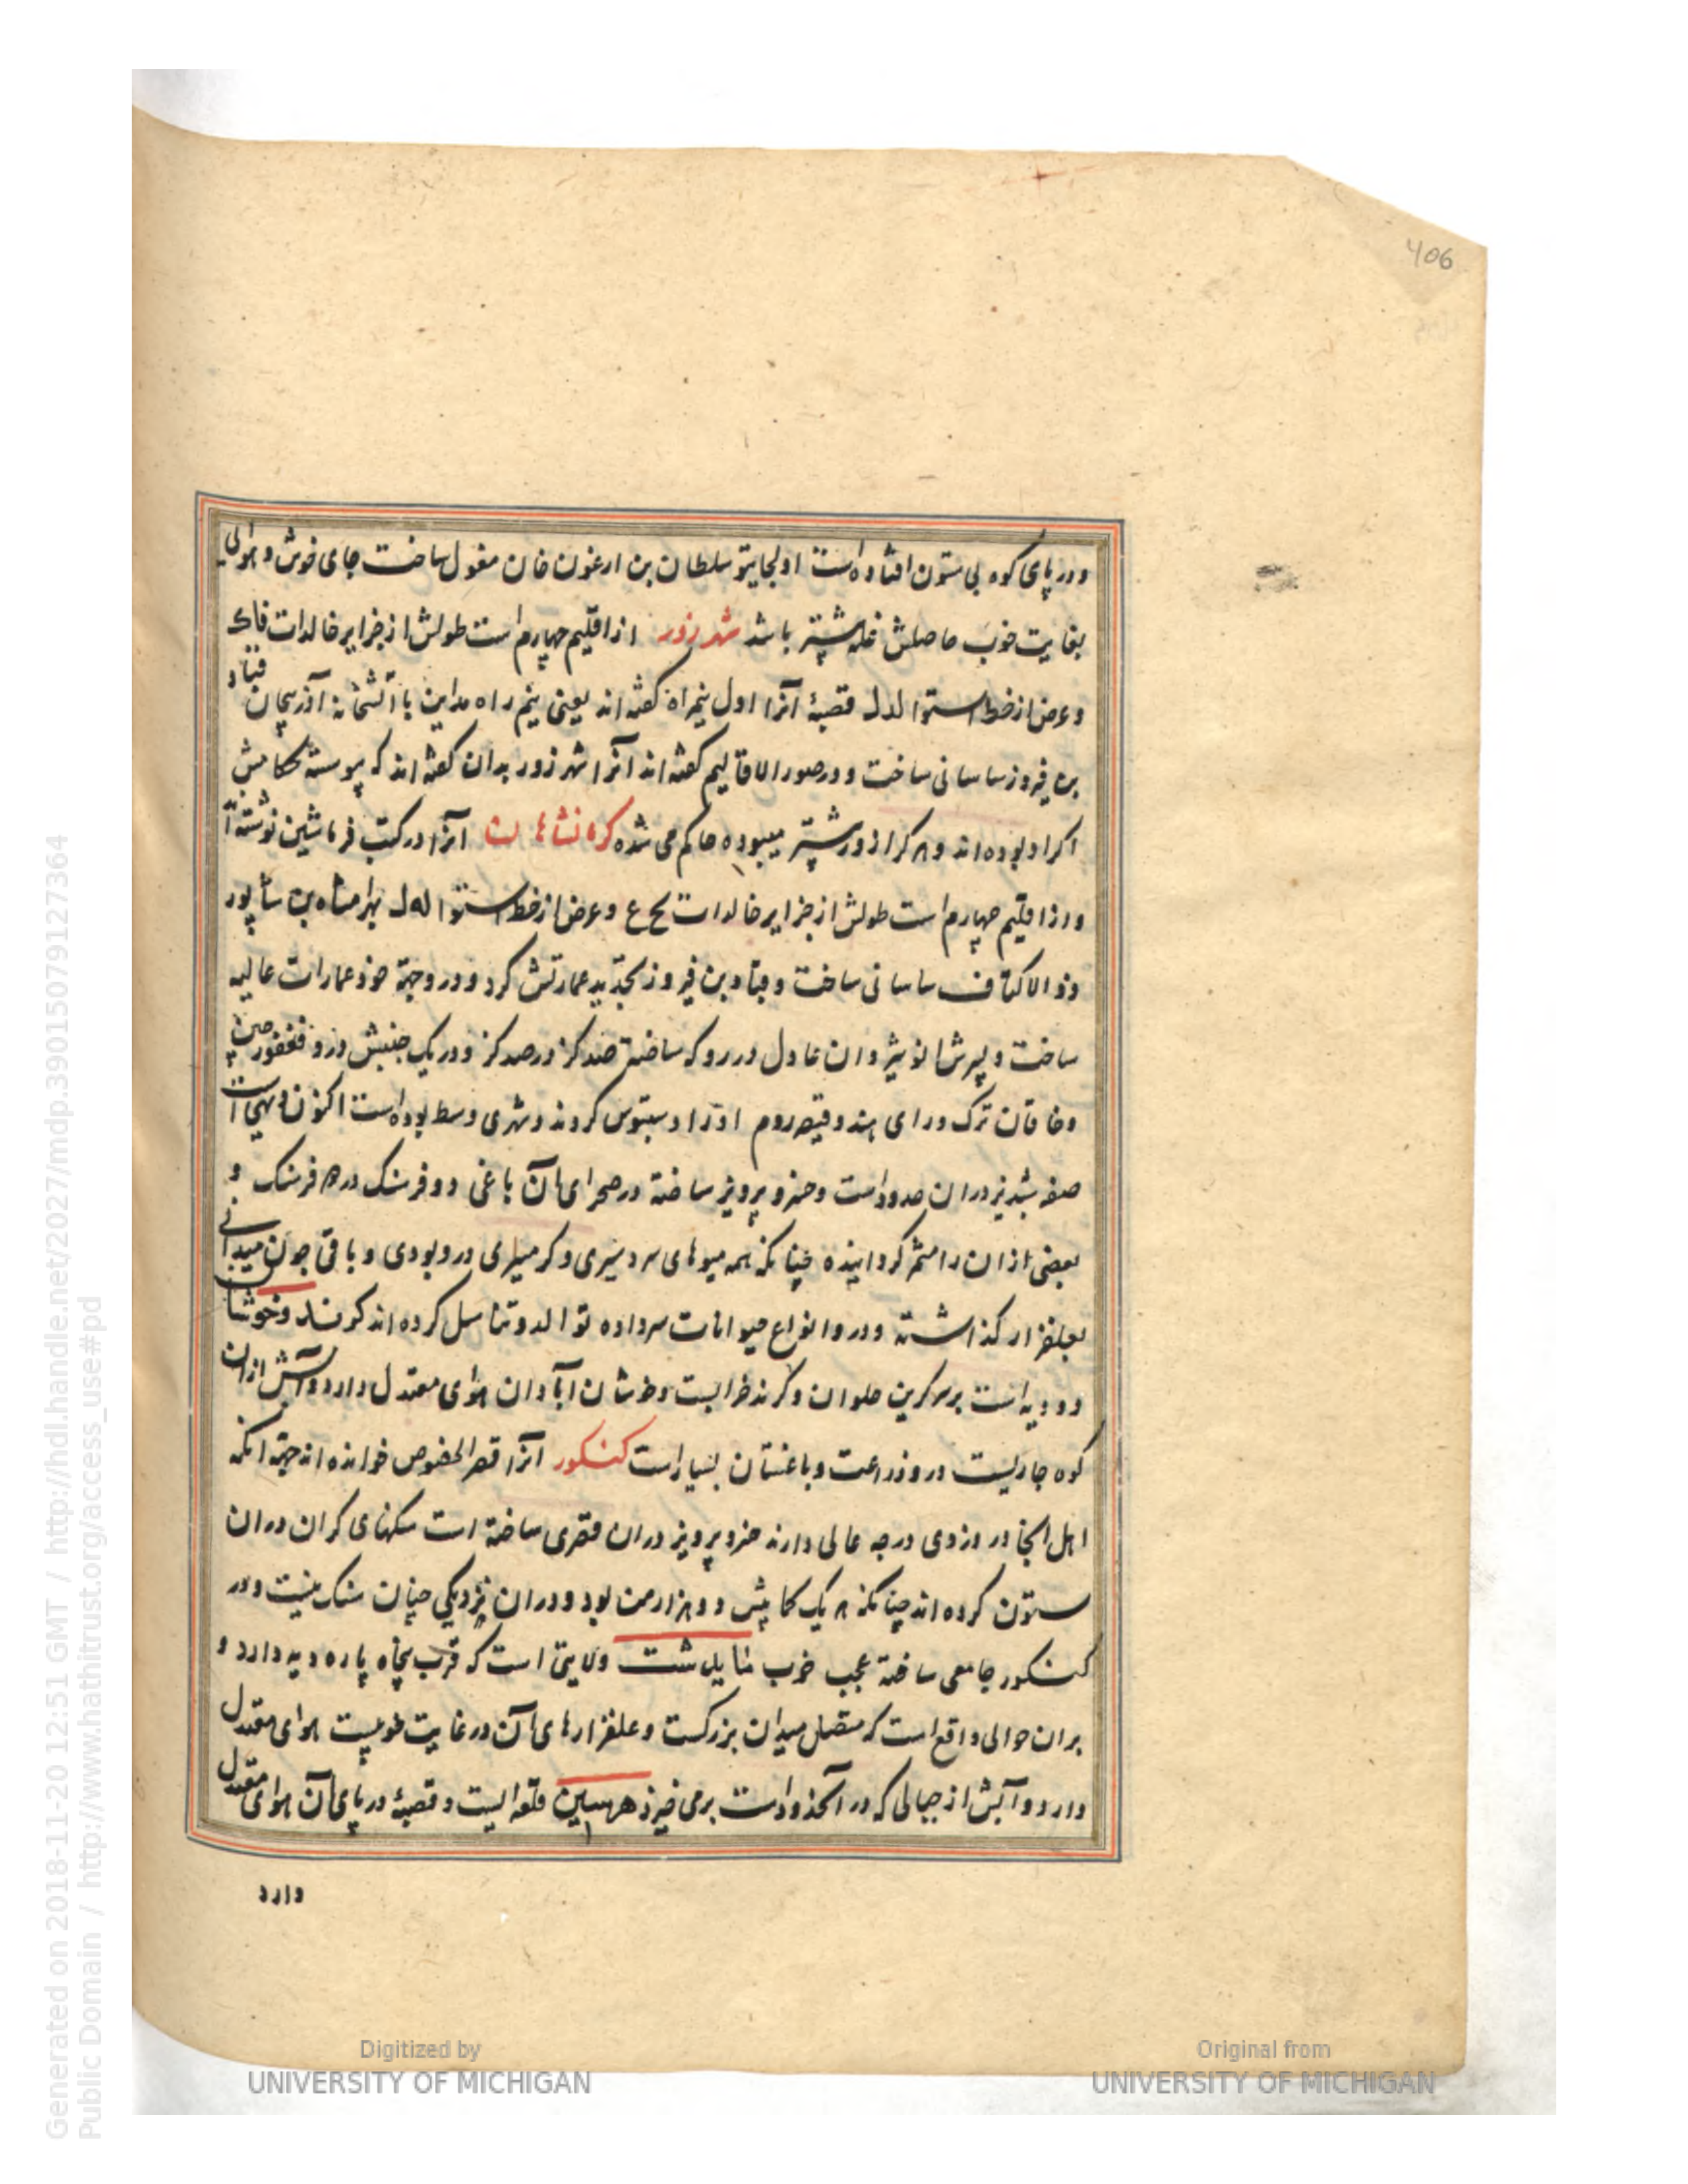 406
ودر پای کوه بی ستون افتاده است اولجایتو سلطان بن ارغون خان مغول ساخت جای خوش و هوائی
بغایت خوب حاصلش غله بیشتر باشد شهر زور از اقلیم چهارم است طولش از جزایر خالدات فاک
وعرض از خط استوا لدل قصبهٔ آنرا اول نیمراه گفته اند یعنی نیم راه مداین با آتشخانه آذربیجان قباد
بن فیروز ساسانی ساخت و در صور الاقالیم گفته اند آنرا شهر زور بدان گفته اند که پیوسته حکامش
اکراد بوده اند و هر کرا زور بیشتر میبوده حاکم می شده کرمانشاهان آنرا در کتب قرماشین نوشته اند
و از اقلیم چهارم است طولش از جزایر خالدات لح ع وعرض از خط استوا لەل بهرامشاه بن شاپور
ذو الاکتاف ساسانی ساخت و قباد بن فیروز تجدید عمارتش کرد و در وجهة خود عمارات عالیه
ساخت و پسرش انوشیروان عادل در رو که ساخته صد گز در صد گز و در یک جشنش درو فغفور چین
وخاقان ترک و رای هند و قیصر روم اورا دستبوس کردند و شهری وسط بوده است اکنون دیهی است
صفه شبدیز دران حدود است و خسرو پرویز ساخته در صحرای آن باغی دو فرسنگ در دو فرسنگ و
بعضی از ان را مثمر گردانیده چنانکه همه میوهای سردسیری و کرمسیری درو بودی و باقی چون میدانی
بعلفزار گذاشته ودرو انواع حیوانات سرداده توالد و تناسل کرده اند کرند و خوشان
دو دیه است بر سر کریوه حلوان و کرند خرابست و خوشان آبادان هوای معتدل دارد و آبش از ان
کوه جاریست درو زراعت و باغستان بسیار است کنکور آنرا قصر اللصوص خوانده اند جهة آنکه
اهل آنجا در دزدی درجه عالی دارند خسرو پرویز دران قصری ساخته است سنگهای گران دران
ستون کرده اند چنانکه هر یک کمابیش دو هزار من بود و دران نزدیکی چنان سنک نیست ودر
کنکور جامعی ساخته عجب خوب مایدشت ولایتی است که قرب پنجاه پاره دیه دارد و
بران حوالی واقع است که متصل میدان بزرگست و علفزارهای آن در غایت خوبیست هوای معتدل
دارد و آبش از جبالی که در آنحدود است برمی خیزد هرسین قلعه ایست و قصبهٔ در پای آن هوای معتدل
دارد
Generated on 2018-11-20 12:51 GMT / http://hdl.handle.net/2027/mdp.39015079127364
Public Domain / http://www.hathitrust.org/access_use#pd
Digitized by
UNIVERSITY OF MICHIGAN
Original from
UNIVERSITY OF MICHIGAN